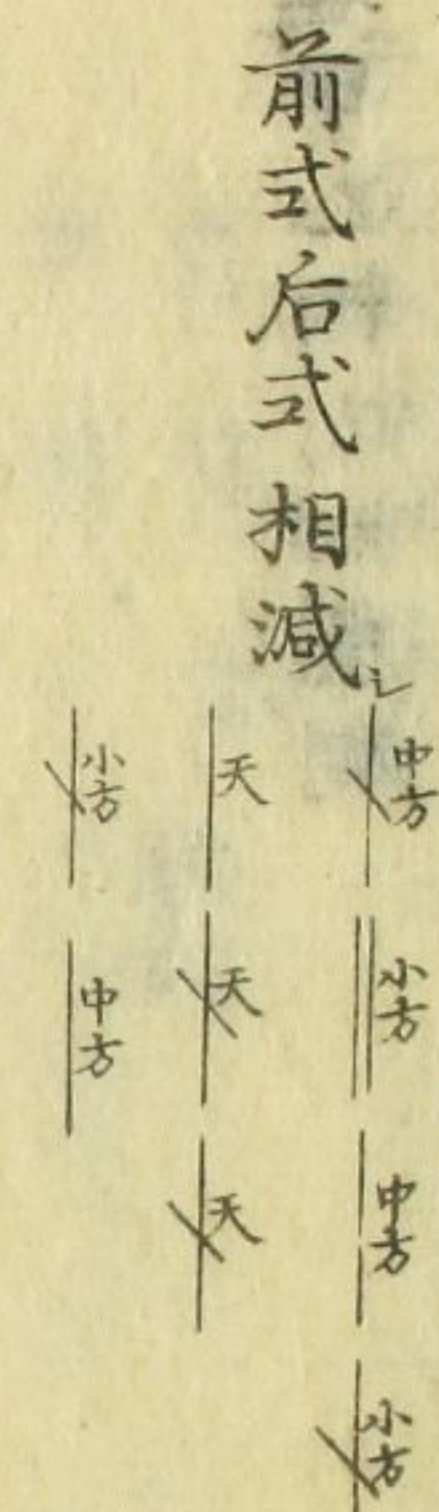 前式后式相減〆
中方 小方 中方 小方
天 天 天
小方 中方